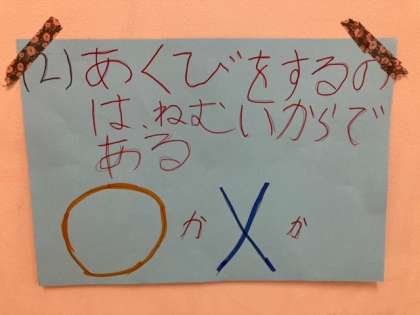 (2) あくびをするの
は、ねむいからで
ある
○ か X か